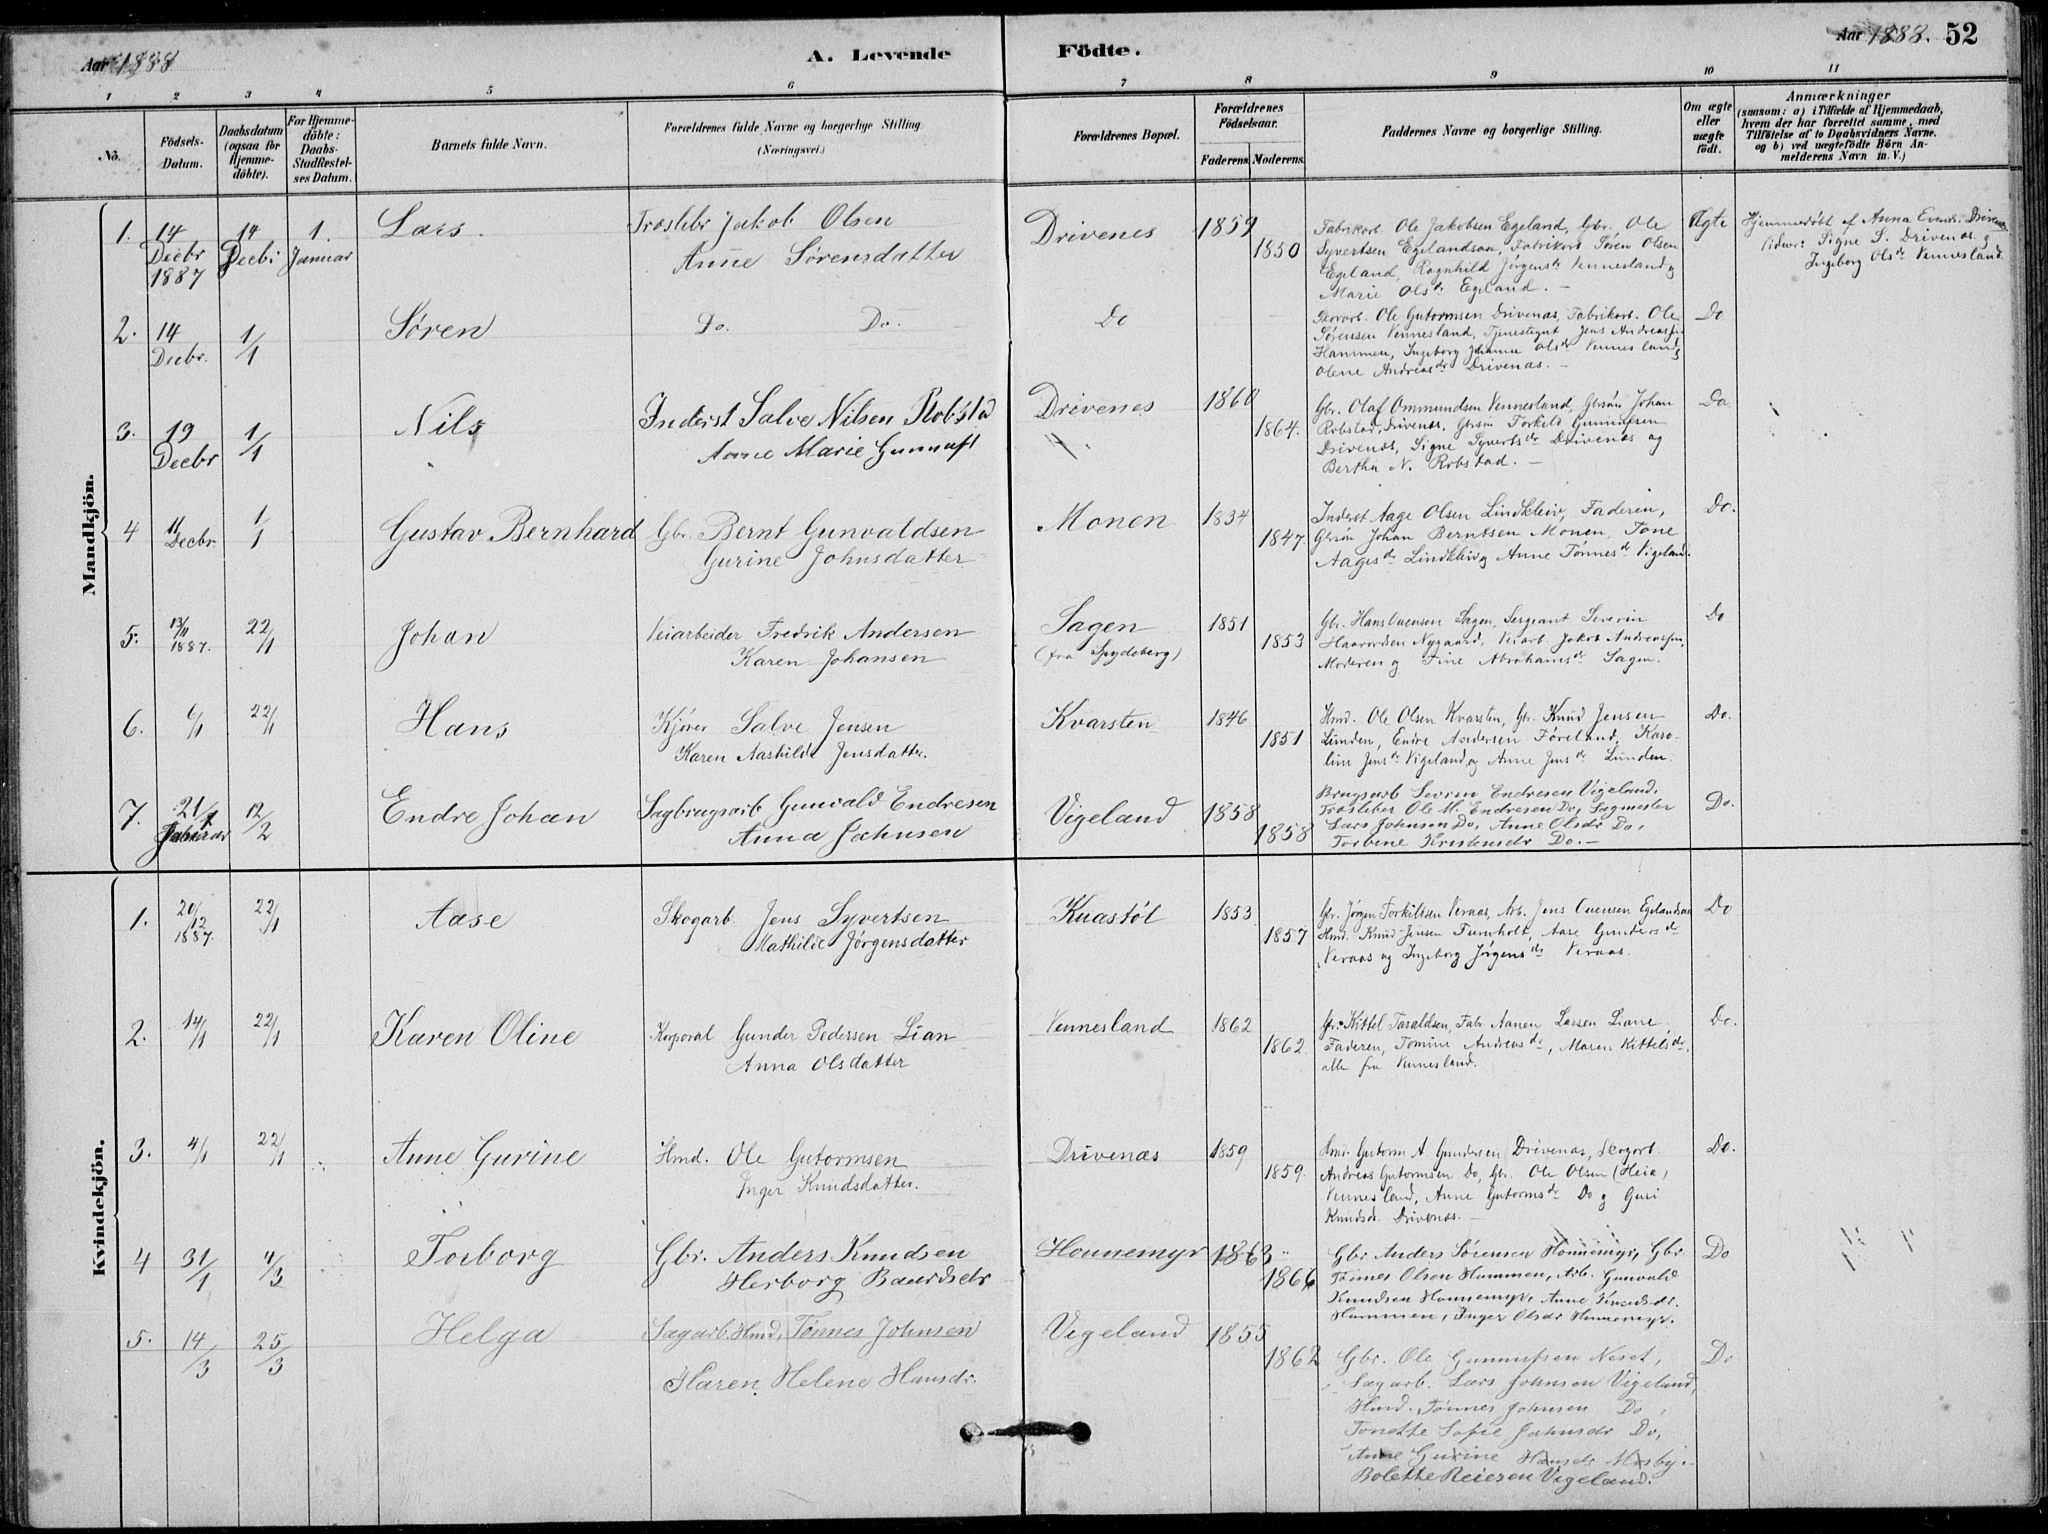 Aar 1888
A. Levende
Födte.
Aar 1888. 52
1 2 3 4 5 6 7 8 9 10 11
No.
Födsels-
Datum.
Daabsdatum
(ogsaa for
Hjemme-
döbte).
For Hjemme-
döbte:
Daabs-
Stadfæstel-
ses Datum.
Barnets fulde Navn.
Forældrenes fulde Navne og borgerlige Stilling.
(Næringsvei.)
Forældrenes Bopæl.
Forældrenes
Födselsaar.
Faderens. Moderens.
Faddernes Navne og borgerlige Stilling.
Om ægte
eller
uægte
födt.
Anmærkninger
(saasom: a) i Tilfælde af Hjemmedaab,
hvem der har forrettet samme, med
Tilföielse af to Daabsvidners Navne.
og b) ved uægtefödte Börn An-
melderens Navn m. V.)
Mandkjön.
1. 14 Decbr 1887 14 Decbr 1. Januar Lars.
Træslebr Jakob Olsen
Anne Sørensdatter
Drivenes 1859 1850
Fabrikarb. Ole Jakobsen Egeland, Gbr. Ole
Syvertsen Egelandsaa, Fabrikarb. Søren Olsen
Egeland, Ragnhild Jørgensdr Vennesland og
Marie Olsdr Egeland. —
Ægte
Hjemmedøbt af Anna Evends. Drivenes
Vidner: Signe S. Drivenas og
Ingeborg Olsdr Vennesland
2. 14 Decbr. 1/1 Søren
Do. Do.
Do
Skovarb. Ole Gutormsen Drivenas, Fabrikarb. Ole
Sørensen Vennesland, Tjenestegut Jens Andreassen
Hammen, Ingeborg Johanne Olsdr Vennesland og
Olene Andreasdr Drivenas. —
Do
3. 19 Decbr 1/1 Nils
Inderst Salve Nilsen Robstad
Anne Marie Gunnufs
Drivenes
1860 1864.
Gbr. Olaf Ommundsen Vennesland, Gbrsøn Johan
Robstad, Drivenes, Gbrsøn Torkild Gunnufsen
Drivenes, Signe Syvertsdr Drivenas og
Bertha N. Robstad. —
Do
4 11 Decbr. 1/1 Gustav Bernhard
Gbr. Bernt Gunvaldsen
Gurine Johnsdatter
Monen 1834 1847
Inderst Aage Olsen Lindkleiv, Faderen,
Gbrsøn Johan Berntsen Monen, Tone
Aagesdr Lindkleiv og Anne Tønnesdr Vigeland.
Do.
5. 13/11 1887. 22/1 Johan
Veiarbeider Fredrik Andersen
Karen Johansen
Sagen
(fra Spydeberg)
1851 1853
Gbr. Hans Evensen Sagen, Sergeant Severin
Haavordsen Nygaard, Veiarb. Jakob Andreassen,
Moderen og Tine Abrahamsdr Sagen.
Do
6. 6/1 22/1 Hans
Kjører Salve Jensen
Karen Aashilde Jensdatter.
Kvarsten 1846 1851
Hmd. Ole Olsen Kvarsten, Gbr. Knud Jensen
Lunden, Endre Andersen Føreland, Karo-
line Jensdr Vigeland, og Anne Jensdr Lunden.
Do.
7. 21/1 Januar 12/2 Endre Johan
Sagbrugsarb Gunvald Endresen
Anna Johnsen
Vigeland 1858 1858
Brugsarb Severin Endresen Vigeland,
Træsleber Ole M. Endresen Do, Sagmester
Lars Johnsen Do, Anne Olsdr Do,
Torbine Kristensdr Do. —
Do.
Kvindekjön.
1. 20/12 1887. 22/1 Aase
Skogarb. Jens Syvertsen
Mathilde Jørgensdatter
Kvastøl 1853 1857
Gbr. Jørgen Torkildsen Veraas, Arb. Jens Evensen Egelandsaa
Hmd. Knud Jensen Furuholt, Aase Gundersdr
Veraas og Ingeborg Jørgensdr Veraas.
Do
2. 14/1 22/1 Karen Oline
Korporal Gunder Pedersen Lian
Anna Olsdatter
Vennesland 1862 1862
Gbr. Kittel Taraldsen, Fabr. Aanen Larsen Liane,
Faderen, Tomine Andreasdr, Maren Kittelsdr,
alle fra Vennesland.
Do.
3. 4/1 22/1 Anne Gurine
Hmd. Ole Gutormsen
Inger Knudsdatter.
Drivenæs 1859 1859.
Hmd. Gutorm A. Gundersen Drivenas, Skogarb.
Andreas Gutormsen Do, Gbr. Ole Olsen (Heia)
Vennesland, Anne Gutormsdr Do og Guri
Knudsdr. Drivenas. —
Do.
4 31/1 4/3 Torborg
Gbr. Anders Knudsen
Herborg Baardsdr
Honnemyr 1863 1866
Gbr Anders Sørensen Honnemyr, Gbr
Tønnes Olsen Hammen, Arb. Gunvald
Knudsen Honnemyr, Anne Knudsdr.
Hammen, Inger Olsdr Honnemyr.
Do
5. 14/3 25/3 Helga
Sagarb. Hmd. Tønnes Johnsen
Karen Helene Hansdr.
Vigeland 1855 1862
Gbr. Ole Gunnufsen Neset,
Sagarb. Lars Johnsen Vigeland,
Hmd. Tønnes Johnsen Do,
Tonette Sofie Johnsdr Do,
Anne Gurine Hansdr Mosby.
Bolette Reiersen Vigeland.
Do